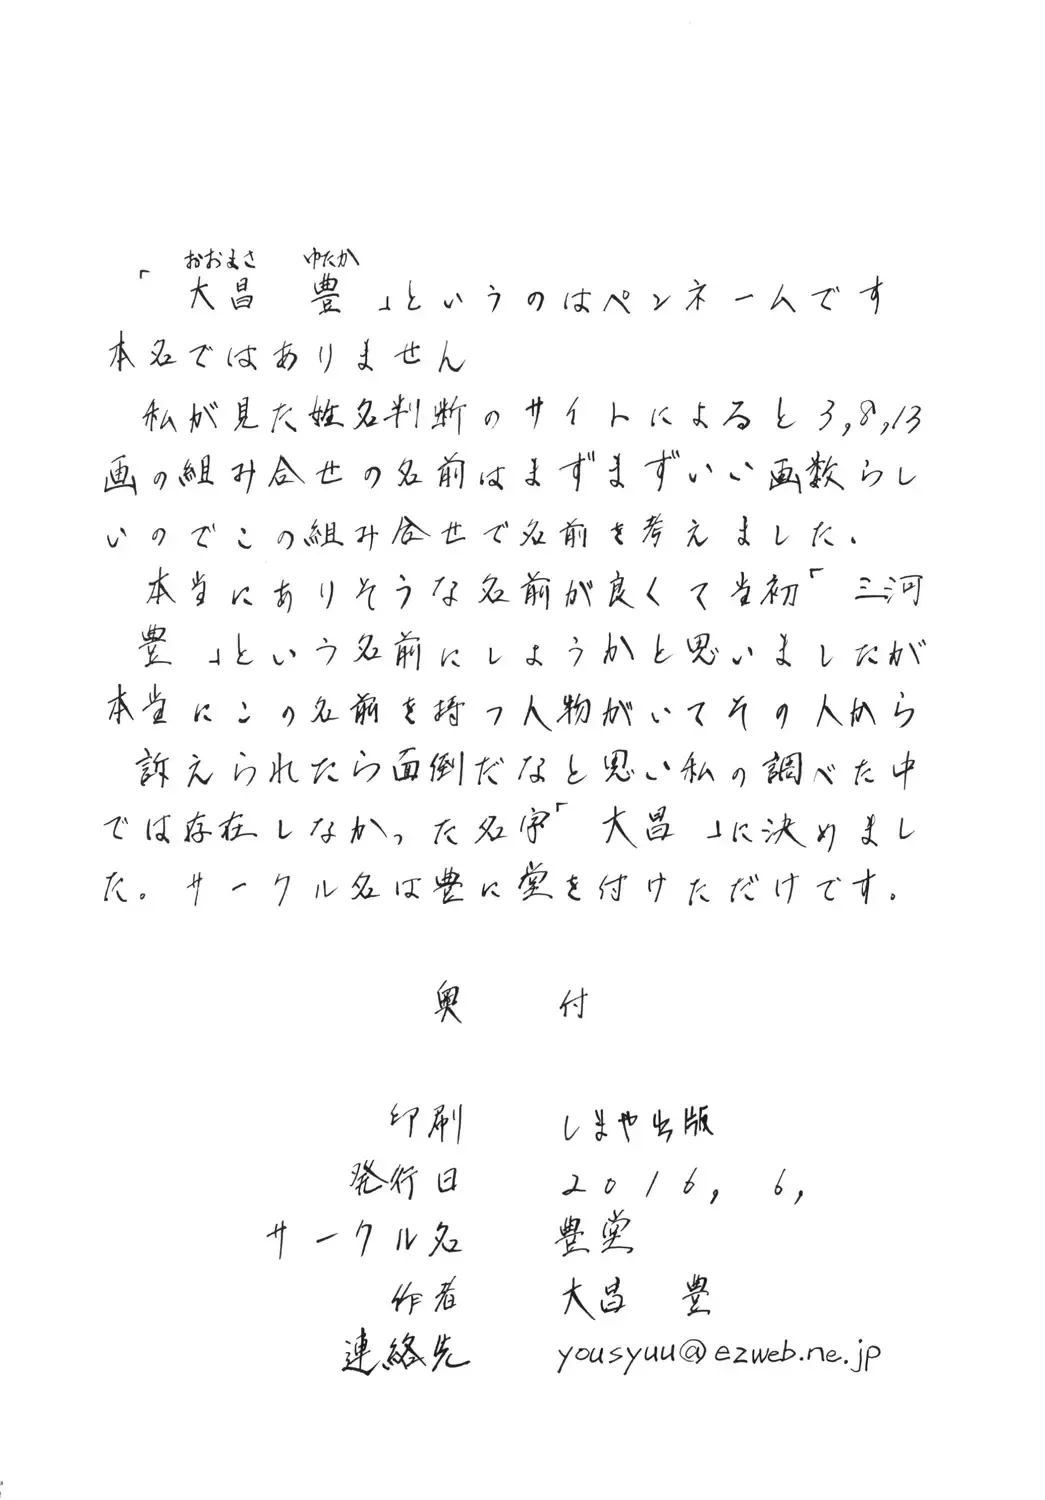 おおまさ ゆたか
「大昌 豊」というのはペンネームです
本名ではありません
私が見た姓名判断のサイトによると3,8,13
画の組み合せの名前はまずまずいい画数らし
いのでこの組み合せで名前を考えました.
本当にありそうな名前が良くて当初「三河
豊」という名前にしようかと思いましたが
本当にこの名前を持つ人物がいてその人から
訴えられたら面倒だなと思い私の調べた中
では存在しなかった名字「大昌」に決めまし
た。サークル名は豊に堂を付けただけです。
奥 付
印刷 しまや出版
発行日 2016, 6,
サークル名 豊堂
作者 大昌 豊
連絡先 yousyuu@ezweb.ne.jp